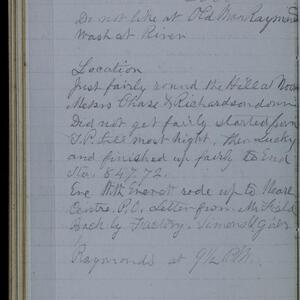 Do not like at Old Man Raymond
Wash at River
Location
Just fairly round the Hill at Noon
Messrs Chase & Richardson down
Did not get fairly started from
T.P. till most night. then Lucky
and finished up fairly to End
Sta. 847.72.
Eve With Everett rode up to
Centre. P.O. Letter from
Back by Factory.
Raymonds at 9½ P.M.